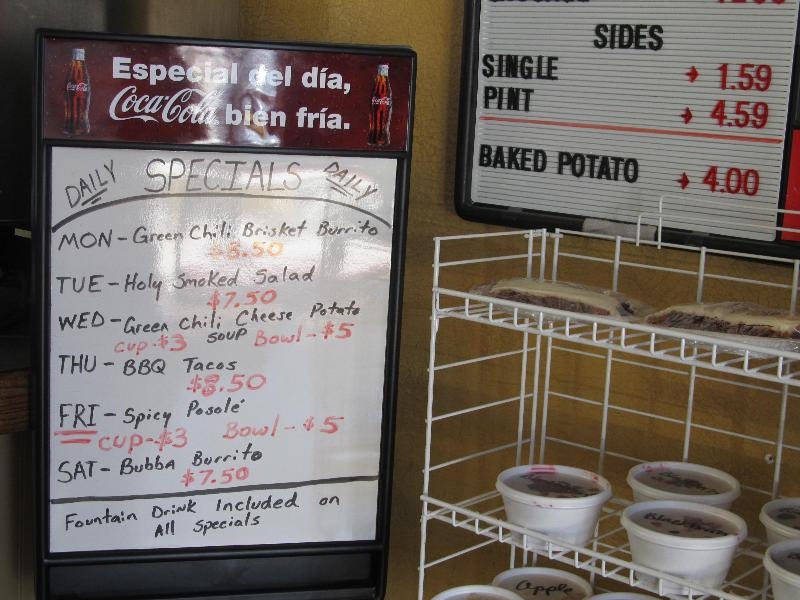 Especial del día,
Coca-Cola bien fría.
DAILY SPECIALS DAILY
MON - Green Chili Brisket Burrito
$3.50
TUE - Holy Smoked Salad
$7.50
WED - Green Chili Cheese Potato
cup-$3 soup Bowl-$5
THU - BBQ Tacos
$8.50
FRI - Spicy Posolé
cup-$3 Bowl-$5
SAT - Bubba Burrito
$7.50
Fountain Drink Included on
All Specials
SIDES
SINGLE → 1.59
PINT → 4.59
BAKED POTATO → 4.00
Apple